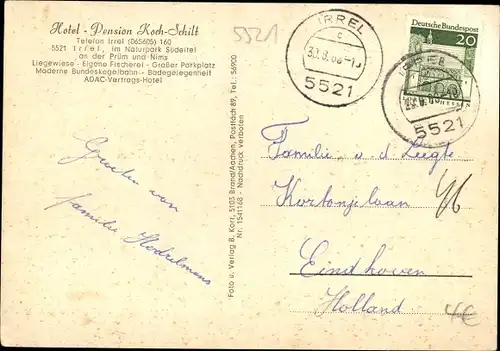 Hotel - Pension Koch-Schilt
Telefon Irrel (065605) 160
5521 Irrel, im Naturpark Südeifel
an der Prüm und Nims
Liegewiese - Eigene Fischerei - Großer Parkplatz
Moderne Bundeskegelbahn - Badegelegenheit
ADAC-Vertrags-Hotel
5521
IRREL
c
30.8.68-15
5521
Deutsche Bundespost
20
IRREL
5521
Groeten van
familie
Familie v. d. Leegte
Kortonjelaan 46
Eindhoven
Holland
Foto u. Verlag B. Korr, 5103 Brand/Aachen, Postfach 89, Tel.: 56900
Nr. 1541168 - Nachdruck verboten
4€